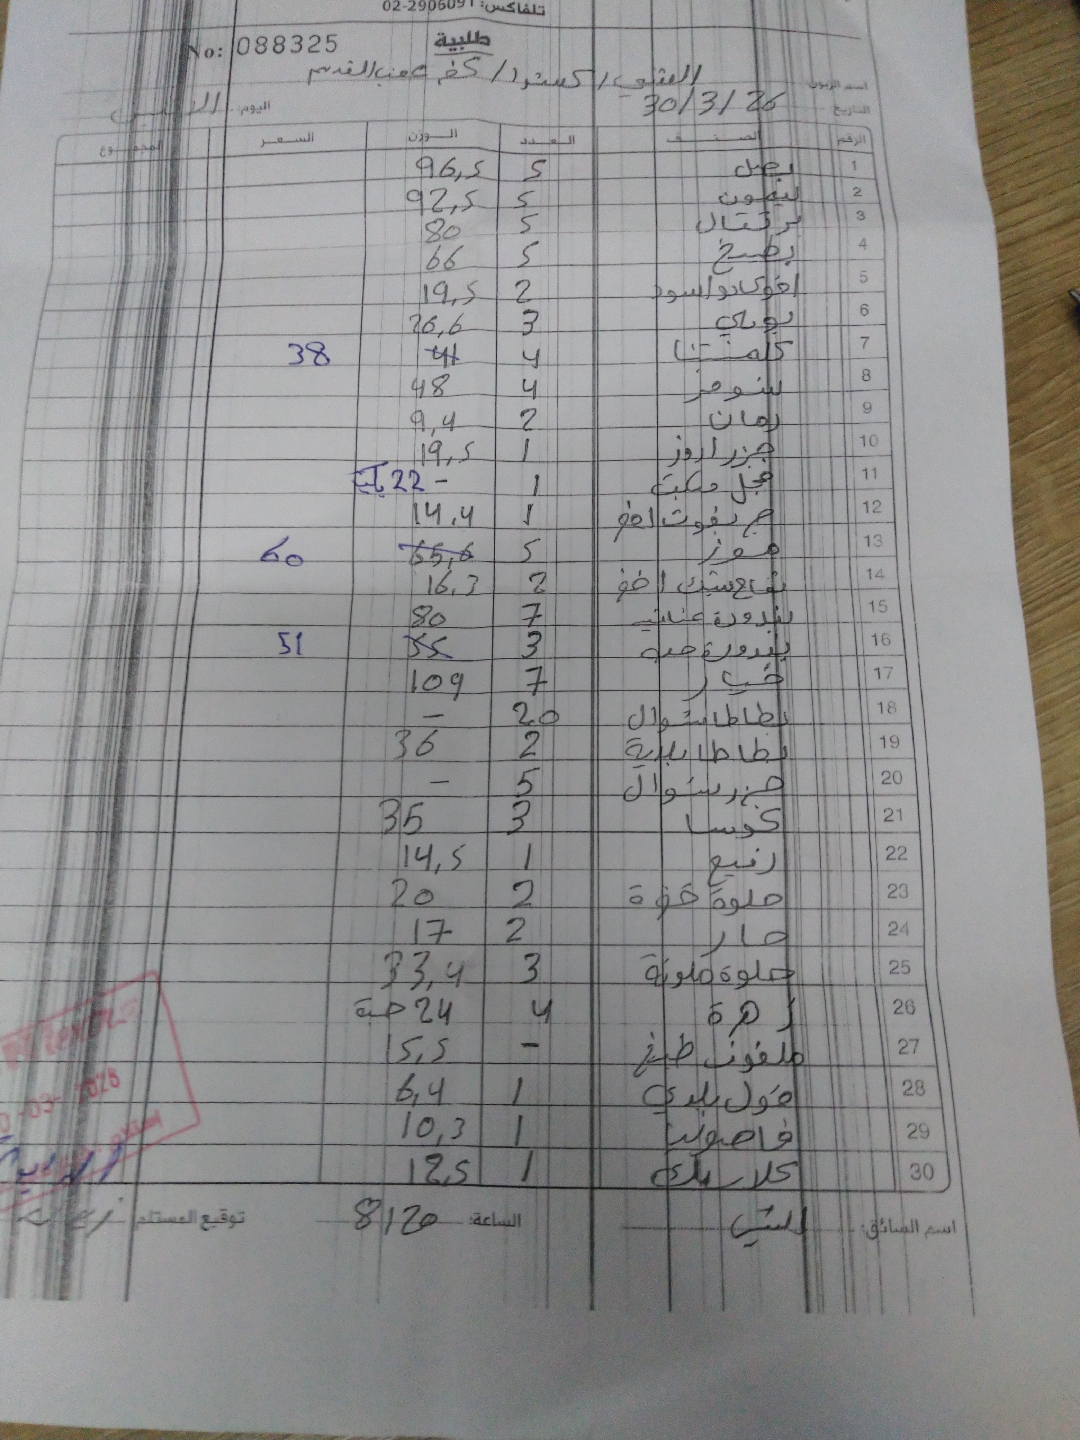 تلفاكس: 02-2906091
طلبية
No: 088325
اسم الزبون: / كفر عقب القدس
التاريخ: 30/3/26 اليوم:
الرقم الصنف العدد الوزن السعر المجموع
1 بصل 5 96,5
2 ليمون 5 92,5
3 برتقال 5 80
4 بطيخ 5 66
5 افوكادو اسود 2 19,5
6 بوملي 3 26,6
7 كلمنتينا 4 41 38
8 4 48
9 رمان 2 9,4
10 جزر اروز 1 19,5
11 فجل 1 - 22
12 1 14,4
13 موز 5 65,6 60
14 تفاح 2 16,3
15 بندورة عناقيد 7 80
16 بندورة حبة 3 55 51
17 خيار 7 109
18 بطاطا شوال 20 -
19 بطاطا بلدية 2 36
20 جزر شوال 5 -
21 كوسا 3 35
22 رفيع 1 14,5
23 حلوة 2 20
24 حار 2 17
25 حلوة ملونة 3 33,4
26 زهرة 4 24 حبة
27 ملفوف طبخ - 15,5
28 فول بلدي 1 6,4
29 فاصوليا 1 10,3
30 1 12,5
اسم السائق: الساعة: 8:20 توقيع المستلم: